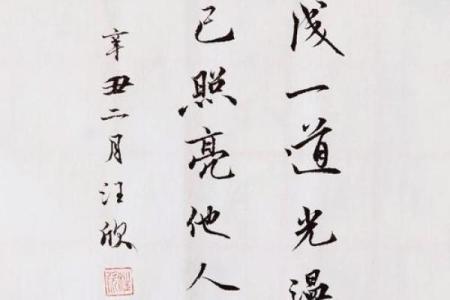 成一道光温
己照亮他人
辛丑二月汪欣